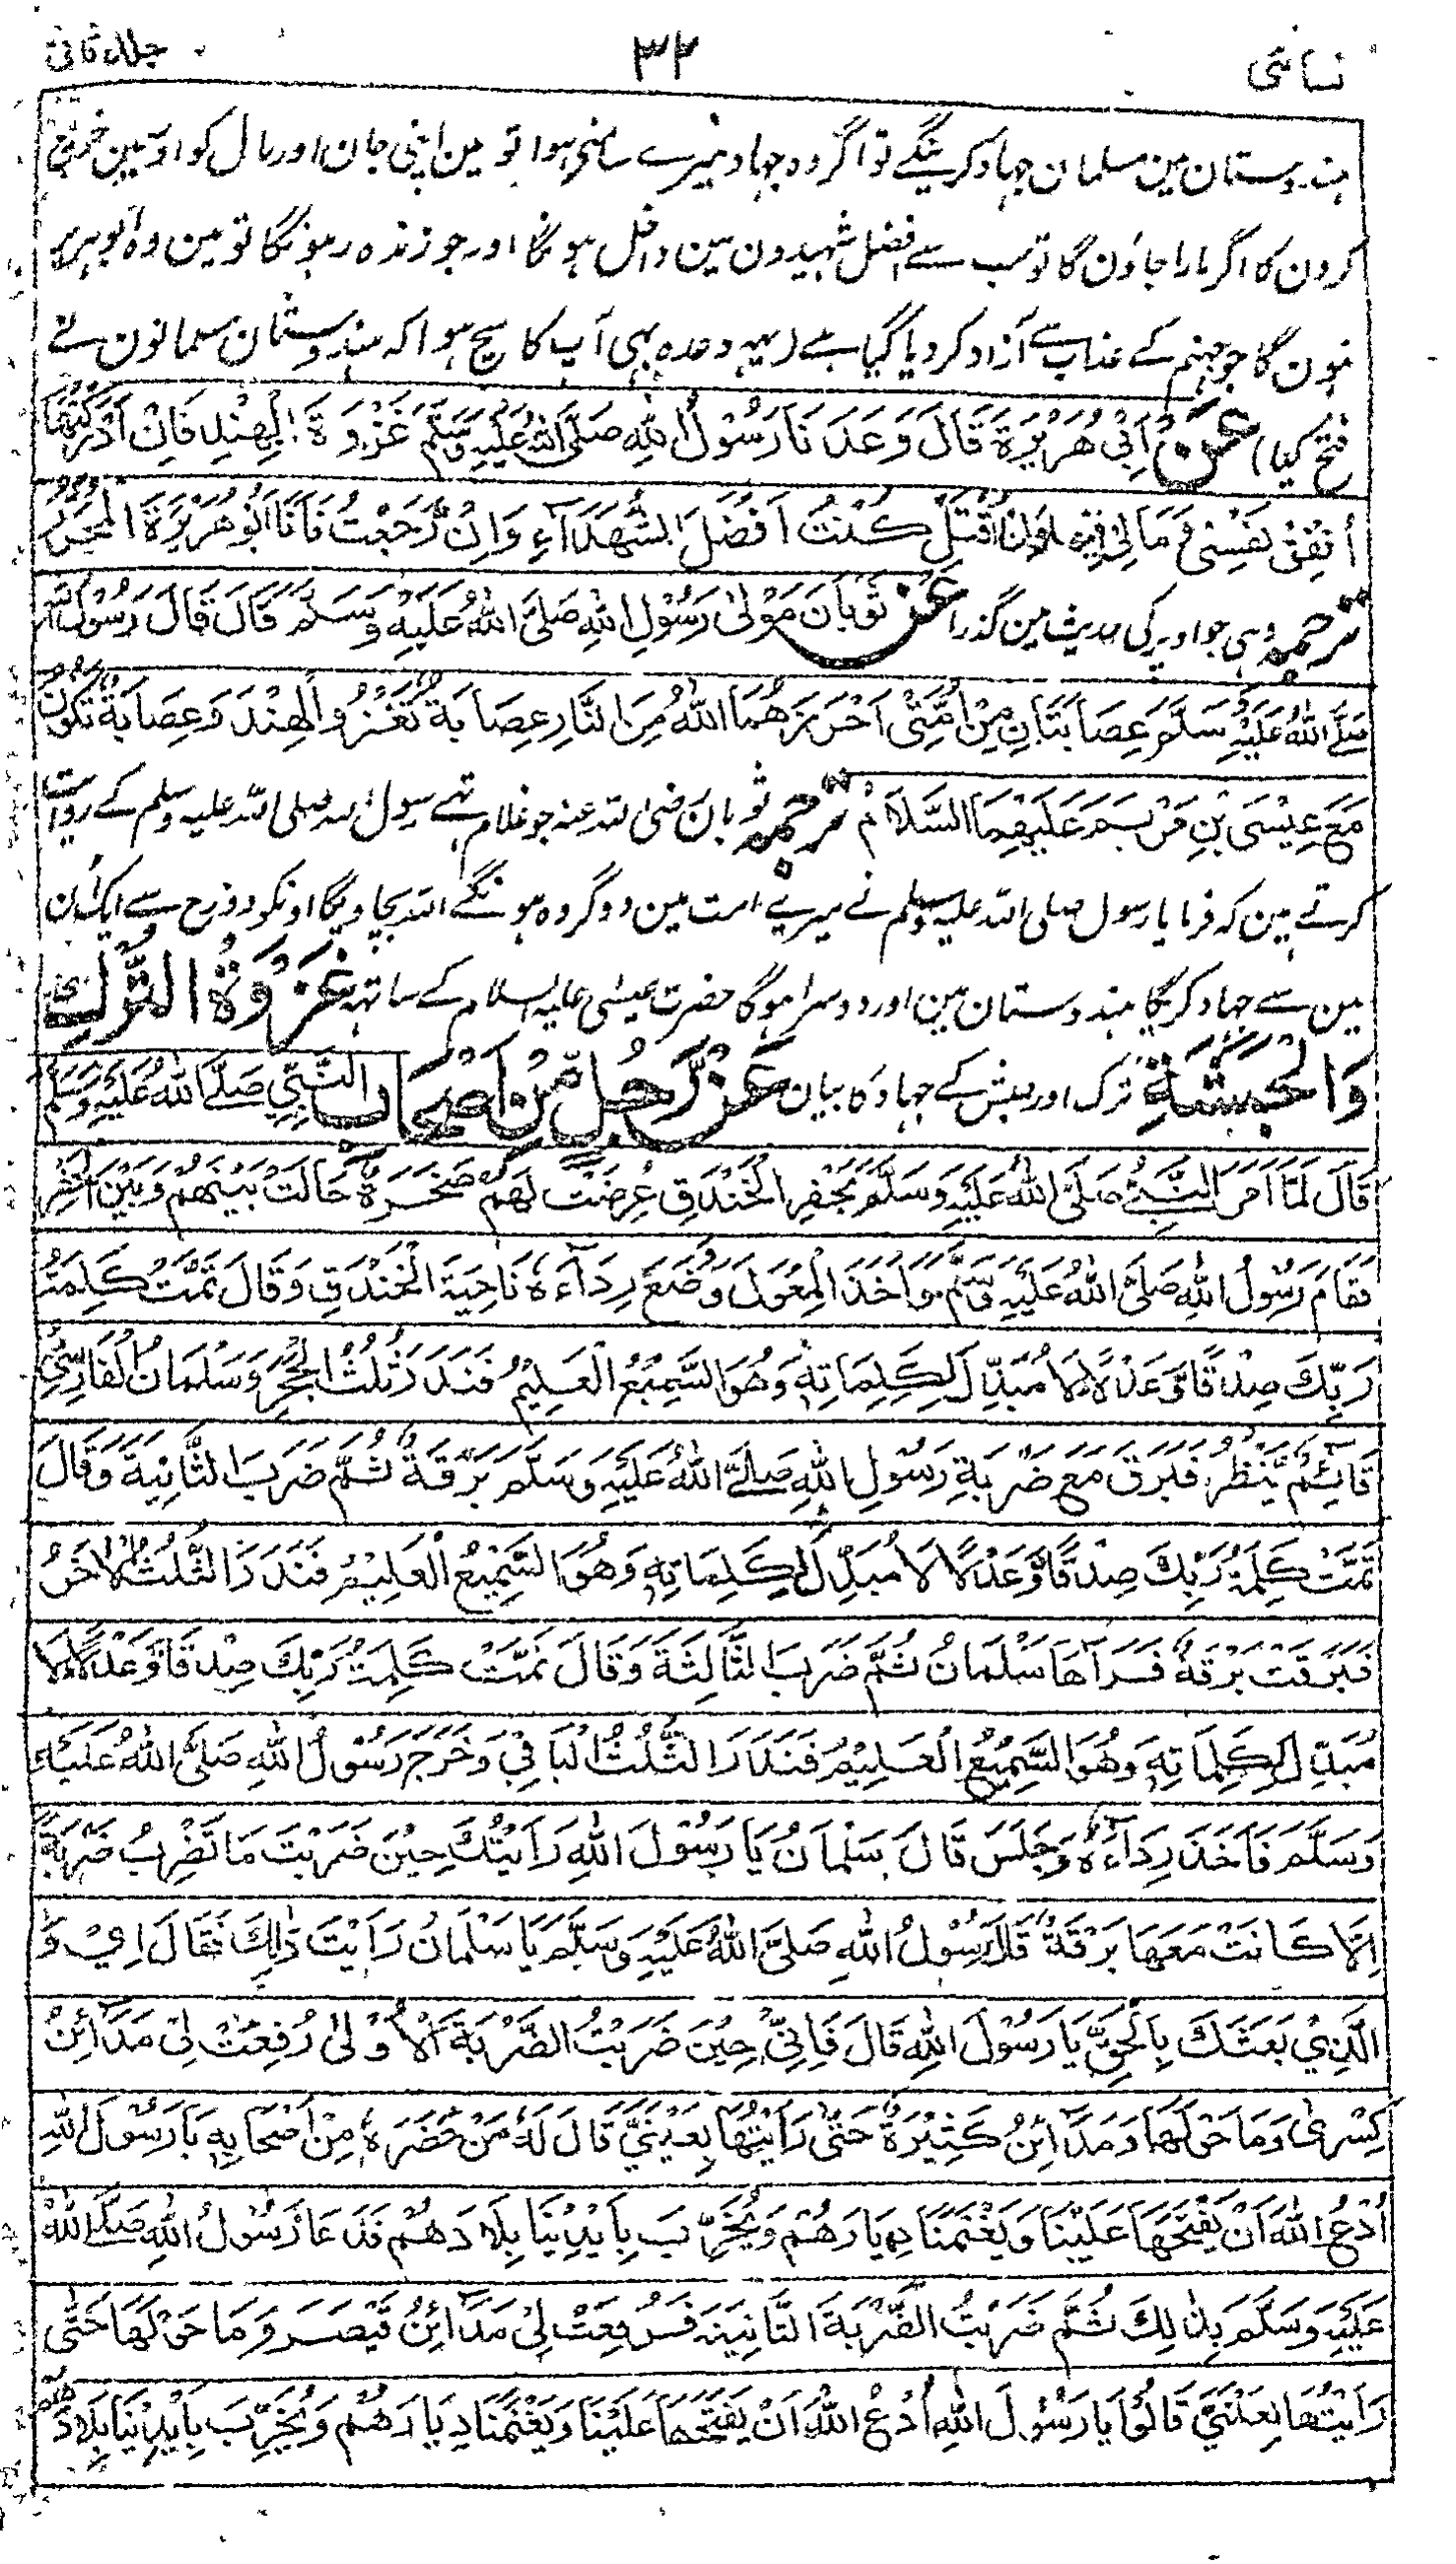 نسائی ۳۲ جلد ثانی
ہندوستان مین مسلمان جہاد کرینگے تو اگر وہ جہاد میرے سامنے ہوا تو مین اپنی جان اور مال کو اوسمین خرچ
کرون گا اگر مارا جاؤن گا تو سب سے افضل شہیدون مین داخل ہونگا اور جو زندہ رہونگا تو مین وہ ابو ہریرہ
ہون گا جو جہنم کے عذاب سے آزاد کر دیا گیا ہے (یہہ وعدہ بہی آپ کا سچ ہوا کہ ہندوستان مسلمانون نے
فتح کیا) عَنْ اَبِیْ هُرَیْرَةَ قَالَ وَعَدَنَا رَسُوْلُ اللهِ صَلَّی اللهُ عَلَیْهِ وَسَلَّمَ غَزْوَةَ الْهِنْدِ فَاِنْ اَدْرَكْتُهَا
أُنْفِقْ نَفْسِیْ وَمَالِیْ فِیْهَا وَاِنْ اُقْتَلْ كُنْتُ اَفْضَلَ الشُّهَدَآءِ وَاِنْ رَّجَعْتُ فَاَنَا اَبُوْ هُرَیْرَةَ الْمُحَرَّرُ
ترجمہ وہی جو اوپر کی حدیث مین گذرا عَنْ ثَوْبَانَ مَوْلٰی رَسُوْلِ اللهِ صَلَّی اللهُ عَلَیْهِ وَسَلَّمَ قَالَ قَالَ رَسُوْلُ اللهِ
صَلَّی اللهُ عَلَیْهِ وَسَلَّمَ عِصَابَتَانِ مِنْ اُمَّتِیْ اَحْرَزَهُمَا اللهُ مِنَ النَّارِ عِصَابَةٌ تَغْزُو الْهِنْدَ وَعِصَابَةٌ تَكُوْنُ
مَعَ عِیْسَی بْنِ مَرْیَمَ عَلَیْهِمَا السَّلَامُ ترجمہ ثوبان رضی اللہ عنہ جو غلام تہے رسول اللہ صلی اللہ علیہ وسلم کے روایت
کرتے ہین کہ فرمایا رسول صلی اللہ علیہ وسلم نے میرے امت مین دو گروہ ہونگے اللہ بچاویگا اونکو دوزخ سے ایک ان
مین سے جہاد کریگا ہندوستان مین اور دوسرا ہوگا حضرت عیسٰی علیہ السلام کے ساتہہ غَزْوَةُ التُّرْكِ
وَالْحَبَشَةِ ترک اور حبش کے جہاد کا بیان عَنْ رَّجُلٍ مِّنْ اَصْحَابِ النَّبِیِّ صَلَّی اللهُ عَلَیْهِ وَسَلَّمَ
قَالَ لَمَّا اَمَرَ النَّبِیُّ صَلَّی اللهُ عَلَیْهِ وَسَلَّمَ بِحَفْرِ الْخَنْدَقِ عُرِضَتْ لَهُمْ صَخْرَةٌ حَالَتْ بَیْنَهُمْ وَبَیْنَ الْحَفْرِ
فَقَامَ رَسُوْلُ اللهِ صَلَّی اللهُ عَلَیْهِ وَسَلَّمَ وَاَخَذَ الْمِعْوَلَ وَوَضَعَ رِدَآءَهٗ نَاحِیَةَ الْخَنْدَقِ وَقَالَ تَمَّتْ كَلِمَةُ
رَبِّكَ صِدْقًا وَّعَدْلًا لَا مُبَدِّلَ لِكَلِمَاتِهٖ وَهُوَ السَّمِیْعُ الْعَلِیْمُ فَنَدَرَ ثُلُثُ الْحَجَرِ وَسَلْمَانُ الْفَارِسِیُّ
قَآئِمٌ یَّنْظُرُ فَبَرَقَ مَعَ ضَرْبَةِ رَسُوْلِ اللهِ صَلَّی اللهُ عَلَیْهِ وَسَلَّمَ بَرْقَةٌ ثُمَّ ضَرَبَ الثَّانِیَةَ وَقَالَ
تَمَّتْ كَلِمَةُ رَبِّكَ صِدْقًا وَّعَدْلًا لَا مُبَدِّلَ لِكَلِمَاتِهٖ وَهُوَ السَّمِیْعُ الْعَلِیْمُ فَنَدَرَ الثُّلُثُ الْاٰخَرُ
فَبَرَقَتْ بَرْقَةٌ فَرَاٰهَا سَلْمَانُ ثُمَّ ضَرَبَ الثَّالِثَةَ وَقَالَ تَمَّتْ كَلِمَةُ رَبِّكَ صِدْقًا وَّعَدْلًا لَا
مُبَدِّلَ لِكَلِمَاتِهٖ وَهُوَ السَّمِیْعُ الْعَلِیْمُ فَنَدَرَ الثُّلُثُ الْبَاقِیْ وَخَرَجَ رَسُوْلُ اللهِ صَلَّی اللهُ عَلَیْهِ
وَسَلَّمَ فَاَخَذَ رِدَآءَهٗ وَجَلَسَ قَالَ سَلْمَانُ یَا رَسُوْلَ اللهِ رَاَیْتُكَ حِیْنَ ضَرَبْتَ مَا تَضْرِبُ ضَرْبَةً
اِلَّا كَانَتْ مَعَهَا بَرْقَةٌ قَالَ رَسُوْلُ اللهِ صَلَّی اللهُ عَلَیْهِ وَسَلَّمَ یَا سَلْمَانُ رَاَیْتَ ذٰلِكَ فَقَالَ اِیْ وَ
الَّذِیْ بَعَثَكَ بِالْحَقِّ یَا رَسُوْلَ اللهِ قَالَ فَاِنِّیْ حِیْنَ ضَرَبْتُ الضَّرْبَةَ الْاُوْلٰی رُفِعَتْ لِیْ مَدَآئِنُ
كِسْرٰی وَمَا حَوْلَهَا وَمَدَآئِنُ كَثِیْرَةٌ حَتّٰی رَاَیْتُهَا بِعَیْنَیَّ قَالَ لَهٗ مَنْ حَضَرَهٗ مِنْ اَصْحَابِهٖ یَا رَسُوْلَ اللهِ
اُدْعُ اللهَ اَنْ یَفْتَحَهَا عَلَیْنَا وَیَغْنَمَنَا دِیَارَهُمْ وَیُخَرِّبَ بِاَیْدِیْنَا بِلَادَهُمْ فَدَعَا رَسُوْلُ اللهِ صَلَّی اللهُ
عَلَیْهِ وَسَلَّمَ بِذٰلِكَ ثُمَّ ضَرَبْتُ الضَّرْبَةَ الثَّانِیَةَ فَرُفِعَتْ لِیْ مَدَآئِنُ قَیْصَرَ وَمَا حَوْلَهَا حَتّٰی
رَاَیْتُهَا بِعَیْنَیَّ قَالُوْا یَا رَسُوْلَ اللهِ اُدْعُ اللهَ اَنْ یَفْتَحَهَا عَلَیْنَا وَیَغْنَمَنَا دِیَارَهُمْ وَیُخَرِّبَ بِاَیْدِیْنَا بِلَادَهُمْ